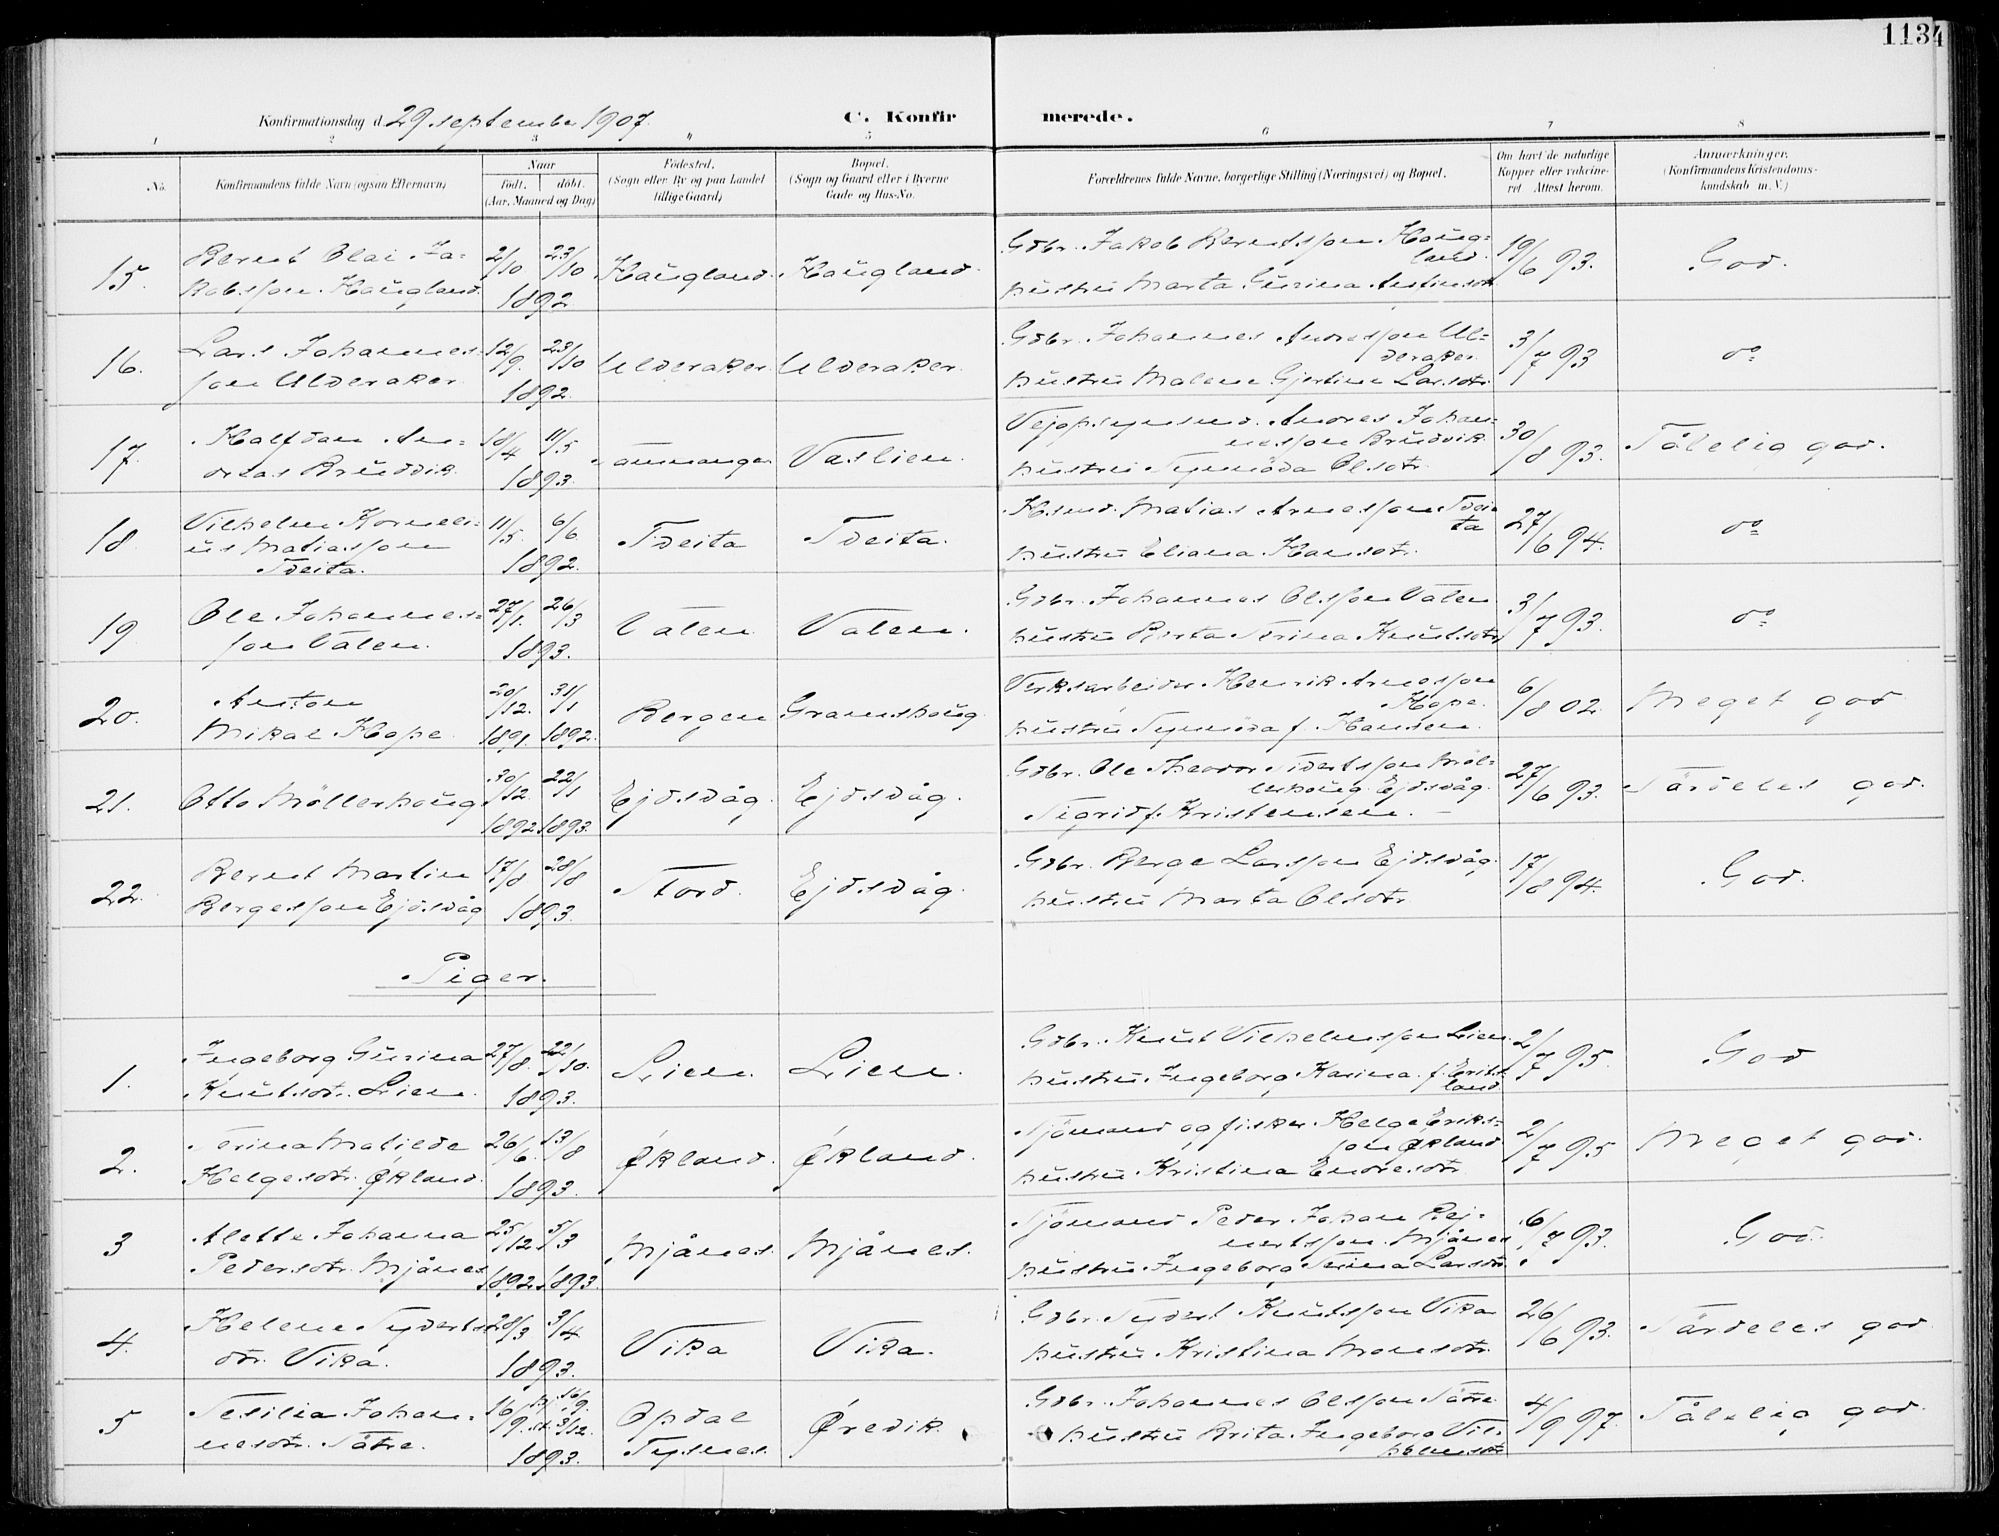 1134
Konfirmationsdag d. 29 september 1907.
C. Konfirmerede.
1 2 3 4 5 6 7 8
No.
Konfirmandens fulde Navn (ogsaa Efternavn)
Naar
født. døbt.
(Aar, Maaned og Dag)
Fødested.
(Sogn eller By og paa Landet tillige Gaard)
Bopæl.
(Sogn og Gaard eller i Byerne Gade og Hus-No.
Forældrenes fulde Navne, borgerlige Stilling (Næringsvei) og Bopæl.
Om havt de naturlige Kopper eller vakcineret. Attest herom.
Anmærkninger.
(Konfirmandens Kristendomskundskab m. V.)
15. Bernt Olai Jakobsson Haugland. 2/10 23/10 1892. Haugland. Haugland. Gdbr. Jakob Berntsson Haugland. hustru Marta Gurina 19/6 93. God.
16. Lars Johannesson Ulderaker 12/9. 23/10 1892. Ulderaker Ulderaker. Gdbr. Johannes Andresson Ulderaker. hustru Malene Gjertine Larsdtr. 3/7 93 do
17. Halfdan Andreas Brudvik 18/4 11/5 1893. Vaslien. Andres Johannesson Brudvik hustru Synnøva Olsdtr. 30/8 93. Tålelig god.
18. Vilhelm Kornelius Matiasson Tveita. 11/5. 6/6 1892. Tveita Tveita. Husmd. Matias Arnesson Tveita hustru Eliana Hansdtr. 27/6 94. do
19. Ole Johannesson Valen. 27/1. 26/3 1893. Valen Valen. Gdbr. Johannes Olsson Valen hustru Berta Serina Knutsdtr. 3/7 93. do
20. Anton Mikal Hope. 20/12. 1891. 31/1 1892. Bergen Gramshaug. Verksarbeider Henrik Arnesson Hope. hustru Synnøva f. Hansen. 6/8 02. Meget god
21. Otto Møllerhaug 30/12. 1892. 22/1 1893. Ejdsvåg. Ejdsvåg. Gdbr. Ole Theodor Sivertsson Møllerhaug Ejdsvåg. Sigrid f. Kristensen. 27/6 93. Særdeles god.
22. Bernt Martin Bergesson Ejdsvåg 17/8 28/8 1893. Stord. Ejdsvåg. Gdbr. Berge Larsson Ejdsvåg. hustru Marta Olsdtr. 17/8 94. God.
Piger.
1. Ingeborg Gurina Knutsdtr. Lien. 27/8. 22/10. 1893. Lien. Lien. Gdbr. Knut Vilhelmsson Lien. hustru Ingeborg Karina f. 2/7 95. God
2. Serina Matilde Helgesdtr. Økland. 26/6. 13/8 1893. Økland. Økland. Sjømand og fisker Helge Eriksson Økland hustru Kristina Endresdtr. 2/7 95 Meget god.
3 Alette Johanna Pedersdtr. Mjånes 25/12. 1892. 5/3 1893. Mjånes. Mjånes. Sjømand Peder Johan Rejnertsson Mjånes hustru Ingeborg Serina Larsdtr. 6/7 93. God.
4. Helene Syvertsdtr. Vika. 28/3 3/4 1893. Vika Vika. Gdbr. Syvert Knutsson Vika hustru Kristina Monsdtr. 26/6 93. Særdeles god.
5 Sesilia Johannesdtr. Sætre. 16/9. 16/9. 3/12. 1893. Opdal Tysnes. Ørevik. Gdbr. Johannes Olsson Sætre hustru Brita Ingeborg Vilhelmsdtr. 4/9 97. Tålelig god.